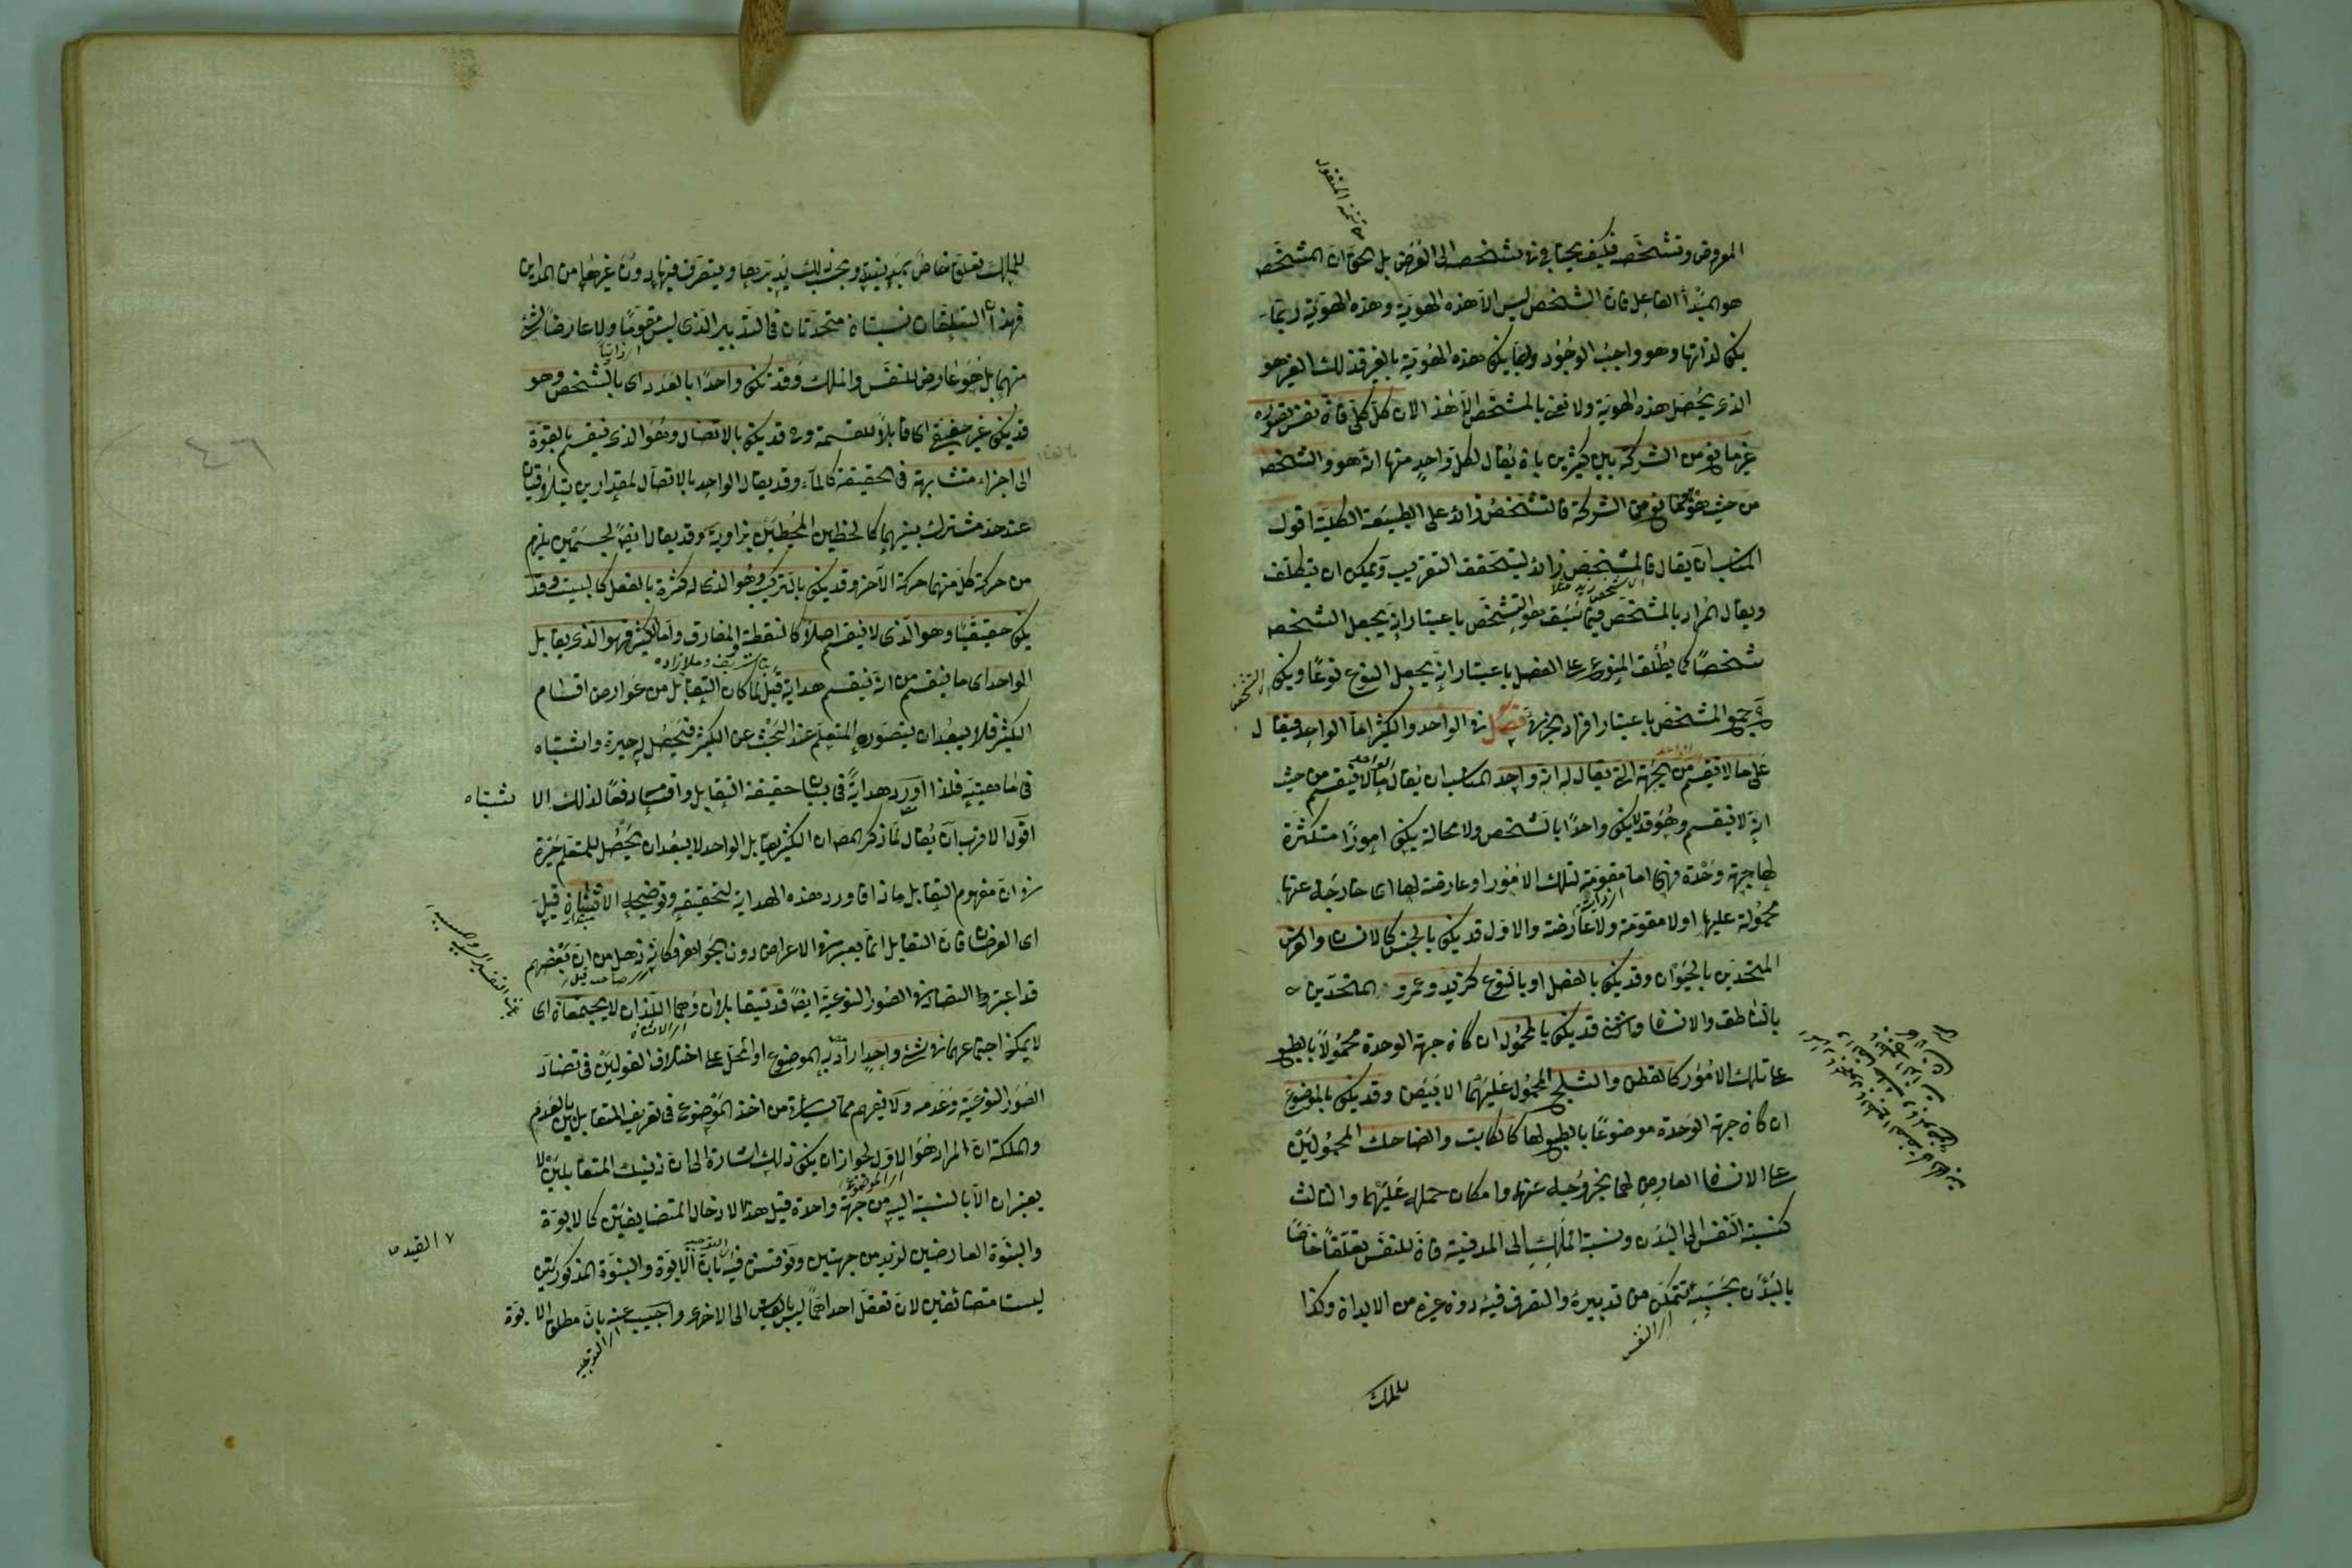 المعروض وتشخصه فكيف يحتاج في تشخصه الى العرض بل الحق ان المشخص
هو المبدأ الفاعل فان الشخص ليس الا هذه الهوية وهذه الهوية ربما
يكون لذاتها وهو واجب الوجود وربما يكون هذه الهوية بالغير فذلك الغير هو
الذي يحصل هذه الهوية ولا نعني بالمشخص الا هذا لان كل كلي فان نفس تصوره
غير مانع من الشركة بين كثيرين بان يقال لكل واحد منها انه هو والشخص
من حيث هو مانع من الشركة فالتشخص زائد على الطبيعة الكلية اقول
المناسب ان يقال فالمشخص زائد ليتحقق التقريب ويمكن ان يتكلف
ويقال المراد بالمشخص فيما سبق هو التشخص باعتبار انه يجعل الشخص
شخصا كما يطلق المنوع على الفصل باعتبار انه يجعل النوع نوعا ويكون
جميع المشخص باعتبار افراد الجزئية فصل في الواحد والكثير اما الواحد فيقال
على ما لا ينقسم من الجهة التي يقال له انه واحد المناسب ان يقال ما لا ينقسم من حيث
انه لا ينقسم وهو قد لا يكون واحدا بالشخص ولا محالة يكون امورا متكثرة
لها جهة وحدة فهي اما مقومة لتلك الامور او عارضة لها اى خارجة عنها
محمولة عليها او لا مقومة ولا عارضة والاول قد يكون بالجنس كالانسان والفرس
المتحدين بالحيوان وقد يكون بالفصل او بالنوع كزيد وعمرو المتحدين
بالناطق والانسان والثاني قد يكون بالمحمول ان كان جهة الوحدة محمولا بالطبع
على تلك الامور كالقطن والثلج المحمول عليهما الابيض وقد يكون بالموضوع
ان كان جهة الوحدة موضوعا بالطبع لها كالكاتب والضاحك المحمولين
على الانسان العارض لهما بخروجه عنها وامكان حمله عليهما والثالث
كنسبة النفس الى البدن ونسبة الملك الى المدينة فان للنفس تعلقا خاصا
بالبدن بحسبه تتمكن من تدبيره والتصرف فيه دون غيره من الابدان وكذا
اى النفس
للملك
للملك تعلق خاص بمدينته وبحسب ذلك يدبرها ويتصرف فيها دون غيرها من المداين
فهذان التعلقان نسبتان متحدتان في التدبير الذى ليس مقوما ولا عارضا لشئ
منهما بل هو عارض للنفس والملك وقد يكون واحدا بالعدد اى بالشخص وهو
قد يكون غير حقيقي اى قابلا للقسمة وح قد يكون بالاتصال وهو الذى ينقسم بالقوة
الى اجزاء متشابهة في الحقيقة كالماء وقد يقال الواحد بالاتصال لمقدارين يتلاقيان
عند حد مشترك بينهما كالخطين المحيطين بزاوية وقد يقال ايضا لجسمين يلزم
من حركة كل منهما حركة الآخر وقد يكون بالتركيب وهو الذى له كثرة بالفعل كالبيت وقد
يكون حقيقيا وهو الذى لا ينقسم اصلا كالنقطة والمفارق واما الكثير فهو الذى يقابل
الواحد اى ما ينقسم من انه ينقسم هداية قيل لما كان التقابل من عوارض اقسام
الكثير فلا يبعد ان يتصوره المتعلم عند البحث عن الكثير فيحصل له حيرة واشتباه
في ماهيته فلذا اورد هداية في بيان حقيقة التقابل واقسامه دفعا لذلك الا
شتباه
اقول الاقرب ان يقال لما ذكر المص ان الكثير يقابل الواحد لا يبعد ان يحصل للمتعلم حيرة
في ان مفهوم التقابل ماذا فاورد هذه الهداية لتحقيقه وتوضيحه الاثنان قيل
اى العرضان فان التقابل انما يعتبر في الاعراض دون الجواهر فكانه ذهل من ان بعضهم
قد اعتبروا التضاد في الصور النوعية ايضا قد يتقابلان وهما اللذان لا يجتمعان اى
لا يمكن اجتماعهما في شئ واحد اراد به الموضوع او المحل على اختلاف القولين في تضاد
الصور النوعية وعدمه ولا يفهم مما سيأتي من اخذ الموضوع في تعريف المتقابلين بالعدم
والملكة ان المراد هو الاول لجواز ان يكون ذلك اشارة الى ان ذينك المتقابلين لا
يعتبران الا بالنسبة اليه من جهة واحدة قيل هذا لادخال المتضايفين كالابوة
القيد
والبنوة العارضين لزيد من جهتين ونوقش فيه بان الابوة والبنوة المذكورتين
ليستا متضائفين لان تعقل احداهما ليس بالقياس الى الاخرى واجيب عنه بان مطلق الابوة
اى التوجيه
٤٦